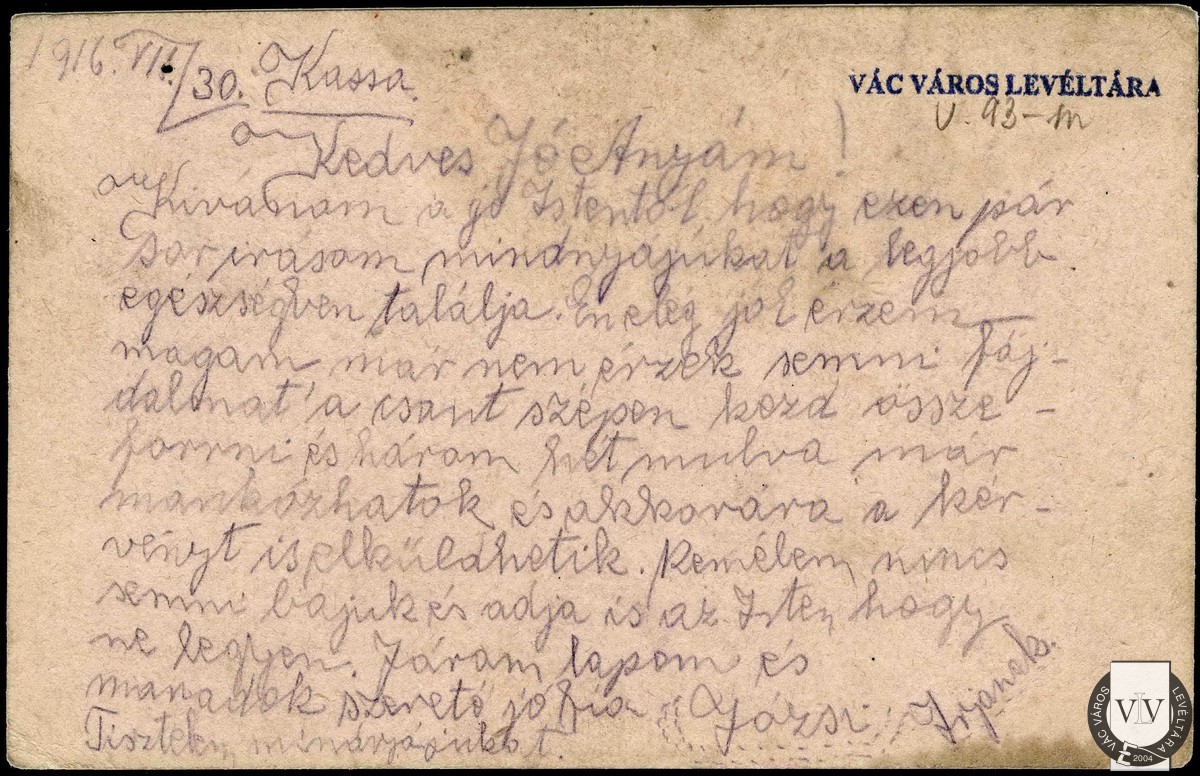 1916. VII./30. Kassa.
VÁC VÁROS LEVÉLTÁRA
V. 93-m
Kedves Jó Anyám!
Kivánom a jó Istentől hogy ezen pár
sor irásom mindnyájukat a legjobb
egészségben találja. En elég jól érzem
magam már nem érzek semmi fáj-
dalmat a csont szépen kezd össze-
forrni és három hét mulva már
mankózhatok és akkorára a kér-
vényt is elküldhetik. Remélem nincs
semmi bajuk és adja is az Isten hogy
ne legyen. Zárom lapom és
maradok szerető jó fia Józsi
Irjanek.
Tisztelem
VÁC VÁROS LEVÉLTÁRA
VLV
2004